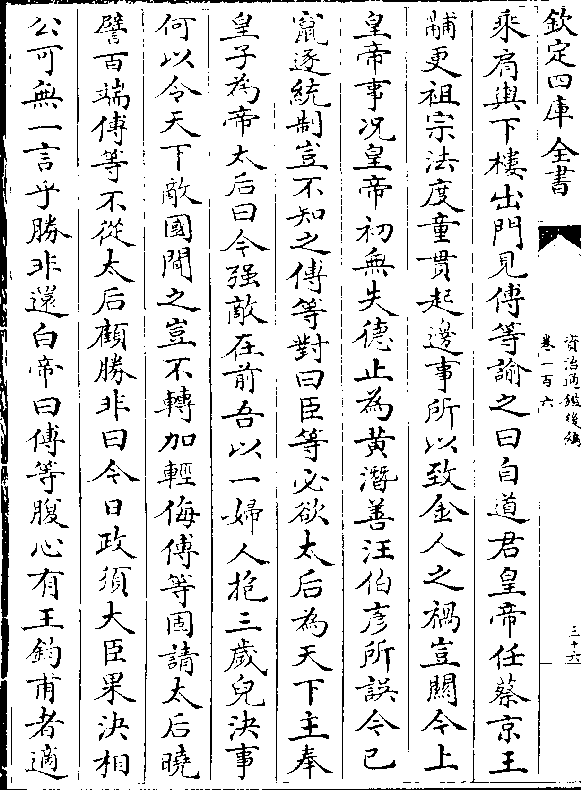 欽定四庫全書
資治通鑑後編
卷一百六
三十六
乘肩輿下樓出門見傅等諭之曰自道君皇帝任蔡京王
黼更祖宗法度童貫起邊事所以致金人之禍豈關今上
皇帝事况皇帝初無失德止為黃潛善汪伯彥所誤今已
竄逐統制豈不知之傅等對曰臣等必欲太后為天下主奉
皇子為帝太后曰今强敵在前吾以一婦人抱三歲兒決事
何以令天下敵國聞之豈不轉加輕侮傅等固請太后曉
譬百端傅等不從太后顧勝非曰今日政須大臣果決相
公可無一言乎勝非還白帝曰傅等腹心有王鈞甫者適